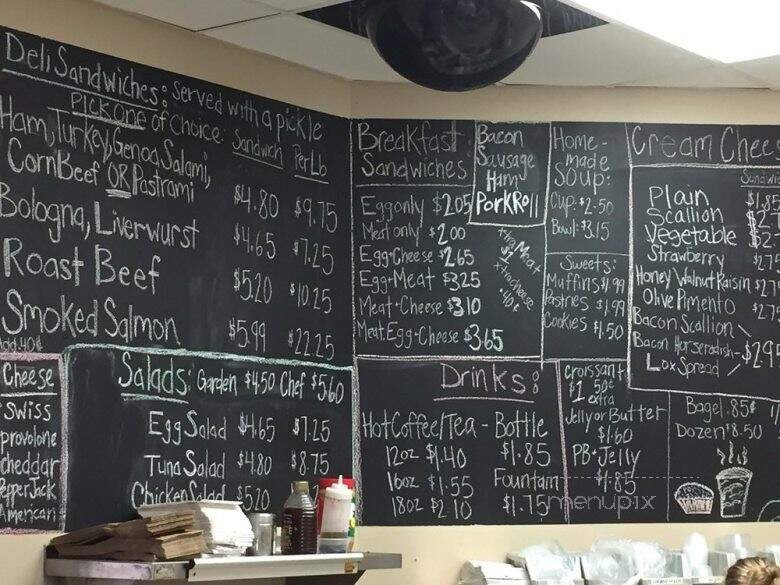 Deli Sandwiches: served with a pickle
PICK ONE of choice Sandwich Per Lb
Ham, Turkey, Genoa Salami,
CornBeef OR Pastrami $4.80 $9.75
Bologna, Liverwurst $4.65 $7.25
Roast Beef $5.20 $10.25
Smoked Salmon $5.99 $22.25
Add .40¢
Cheese
Swiss
provolone
cheddar
PepperJack
American
Salads: Garden $4.50 Chef $5.60
Egg Salad $4.65 $7.25
Tuna Salad $4.80 $8.75
Chicken Salad $5.20
Breakfast
Sandwiches
Egg only $2.05
Meat only $2.00
Egg+Cheese $2.65
Egg+Meat $3.25
Meat+Cheese $3.10
Meat, Egg+Cheese $3.65
Bacon
Sausage
Ham
PorkRoll
xtra Meat
$1
xtra cheese
.40¢
Home-
made
Soup:
Cup: $2.50
Bowl: $3.15
Sweets:
Muffins $1.99
Pastries $1.99
Cookies $1.50
Cream Chee
Sandwic
Plain $1.85
Scallion
Vegetable
Strawberry $2.75
Honey Walnut Raisin
Olive Pimento
Bacon Scallion
Bacon Horseradish - $2.95
Lox Spread
Drinks:
Hot Coffee/Tea - Bottle
12oz $1.40 $1.85
16oz $1.55 Fountain
18oz $2.10 $1.75
Croissant
$1 50¢
extra
Jelly or Butter
$1.60
PB+Jelly
$1.85
Bagel .85¢
Dozen $8.50
menupix